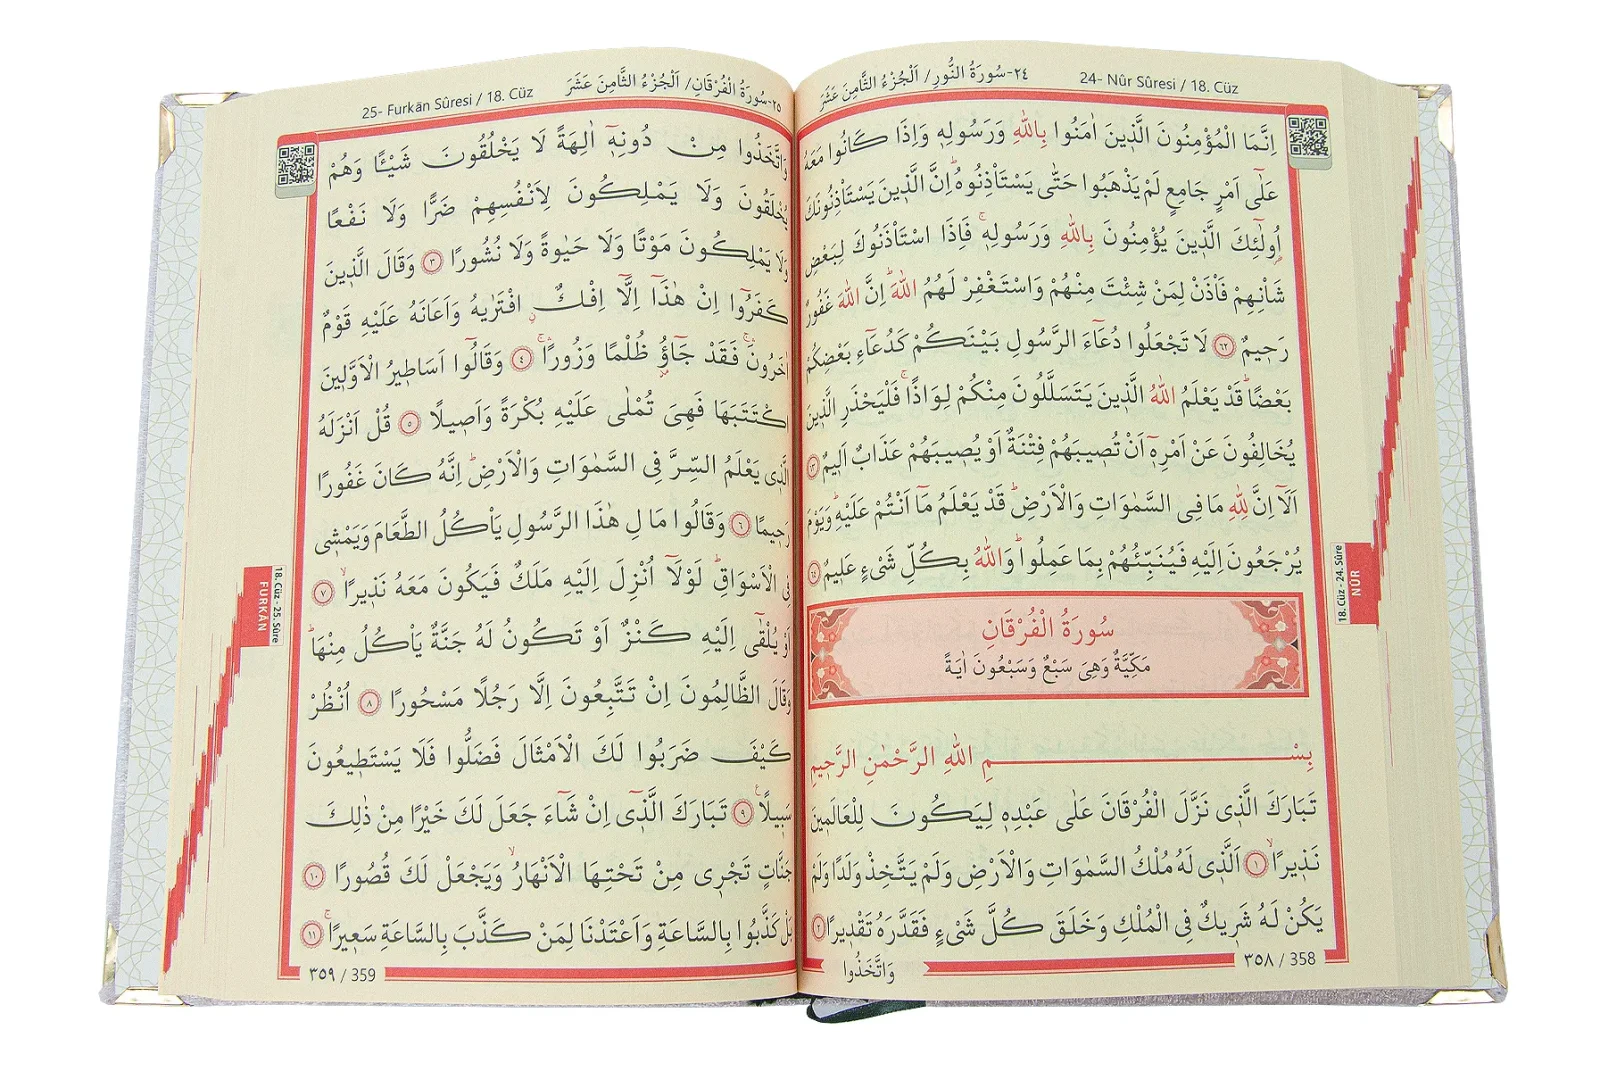 ٢٤-سُورَةُ النُّورِ/ اَلْجُزْءُ الثَّامِنَ عَشَرَ
24- Nûr Sûresi / 18. Cüz
اِنَّمَا الْمُؤْمِنُونَ الَّذ۪ينَ اٰمَنُوا بِاللّٰهِ وَرَسُولِه۪ وَاِذَا كَانُوا مَعَهُ
عَلٰٓى اَمْرٍ جَامِعٍ لَمْ يَذْهَبُوا حَتّٰى يَسْتَأْذِنُوهُۜ اِنَّ الَّذ۪ينَ يَسْتَأْذِنُونَكَ
اُو۬لٰٓئِكَ الَّذ۪ينَ يُؤْمِنُونَ بِاللّٰهِ وَرَسُولِه۪ۚ فَاِذَا اسْتَأْذَنُوكَ لِبَعْضِ
شَأْنِهِمْ فَأْذَنْ لِمَنْ شِئْتَ مِنْهُمْ وَاسْتَغْفِرْ لَهُمُ اللّٰهَۜ اِنَّ اللّٰهَ غَفُورٌ
رَح۪يمٌ ﴿٦٢﴾ لَا تَجْعَلُوا دُعَٓاءَ الرَّسُولِ بَيْنَكُمْ كَدُعَٓاءِ بَعْضِكُمْ
بَعْضًاۜ قَدْ يَعْلَمُ اللّٰهُ الَّذ۪ينَ يَتَسَلَّلُونَ مِنْكُمْ لِوَاذًاۚ فَلْيَحْذَرِ الَّذ۪ينَ
يُخَالِفُونَ عَنْ اَمْرِه۪ٓ اَنْ تُص۪يبَهُمْ فِتْنَةٌ اَوْ يُص۪يبَهُمْ عَذَابٌ اَل۪يمٌ ﴿٦٣﴾
اَلَٓا اِنَّ لِلّٰهِ مَا فِي السَّمٰوَاتِ وَالْاَرْضِۜ قَدْ يَعْلَمُ مَٓا اَنْتُمْ عَلَيْهِۜ وَيَوْمَ
يُرْجَعُونَ اِلَيْهِ فَيُنَبِّئُهُمْ بِمَا عَمِلُواۜ وَاللّٰهُ بِكُلِّ شَيْءٍ عَل۪يمٌ ﴿٦٤﴾
سُورَةُ الْفُرْقَانِ
مَكِّيَّةٌ وَهِيَ سَبْعٌ وَسَبْعُونَ اٰيَةً
بِسْمِ اللّٰهِ الرَّحْمٰنِ الرَّح۪يمِ
تَبَارَكَ الَّذ۪ي نَزَّلَ الْفُرْقَانَ عَلٰى عَبْدِه۪ لِيَكُونَ لِلْعَالَم۪ينَ
نَذ۪يرًاۙ ﴿١﴾ اَلَّذ۪ي لَهُ مُلْكُ السَّمٰوَاتِ وَالْاَرْضِ وَلَمْ يَتَّخِذْ وَلَدًا وَلَمْ
يَكُنْ لَهُ شَر۪يكٌ فِي الْمُلْكِ وَخَلَقَ كُلَّ شَيْءٍ فَقَدَّرَهُ تَقْد۪يرًا ﴿٢﴾
٣٥٨ / 358
وَاتَّخَذُوا
18. Cüz - 24. Sûre
NÛR
٢٥-سُورَةُ الْفُرْقَانِ/ اَلْجُزْءُ الثَّامِنَ عَشَرَ
25- Furkān Sûresi / 18. Cüz
وَاتَّخَذُوا مِنْ دُونِه۪ٓ اٰلِهَةً لَا يَخْلُقُونَ شَيْـًٔا وَهُمْ
يُخْلَقُونَ وَلَا يَمْلِكُونَ لِاَنْفُسِهِمْ ضَرًّا وَلَا نَفْعًا
وَلَا يَمْلِكُونَ مَوْتًا وَلَا حَيٰوةً وَلَا نُشُورًا ﴿٣﴾ وَقَالَ الَّذ۪ينَ
كَفَرُٓوا اِنْ هٰذَٓا اِلَّٓا اِفْكٌۨ افْتَرٰيهُ وَاَعَانَهُ عَلَيْهِ قَوْمٌ
اٰخَرُونَۚ فَقَدْ جَٓاؤُ۫ ظُلْمًا وَزُورًاۚ ﴿٤﴾ وَقَالُٓوا اَسَاط۪يرُ الْاَوَّل۪ينَ
اكْتَتَبَهَا فَهِيَ تُمْلٰى عَلَيْهِ بُكْرَةً وَاَص۪يلًا ﴿٥﴾ قُلْ اَنْزَلَهُ
الَّذ۪ي يَعْلَمُ السِّرَّ فِي السَّمٰوَاتِ وَالْاَرْضِۜ اِنَّهُ كَانَ غَفُورًا
رَح۪يمًا ﴿٦﴾ وَقَالُوا مَالِ هٰذَا الرَّسُولِ يَأْكُلُ الطَّعَامَ وَيَمْش۪ي
فِي الْاَسْوَاقِۜ لَوْلَٓا اُنْزِلَ اِلَيْهِ مَلَكٌ فَيَكُونَ مَعَهُ نَذ۪يرًاۙ ﴿٧﴾
اَوْ يُلْقٰٓى اِلَيْهِ كَنْزٌ اَوْ تَكُونُ لَهُ جَنَّةٌ يَأْكُلُ مِنْهَاۜ
وَقَالَ الظَّالِمُونَ اِنْ تَتَّبِعُونَ اِلَّا رَجُلًا مَسْحُورًا ﴿٨﴾ اُنْظُرْ
كَيْفَ ضَرَبُوا لَكَ الْاَمْثَالَ فَضَلُّوا فَلَا يَسْتَط۪يعُونَ
سَب۪يلًا۟ ﴿٩﴾ تَبَارَكَ الَّذ۪ٓي اِنْ شَٓاءَ جَعَلَ لَكَ خَيْرًا مِنْ ذٰلِكَ
جَنَّاتٍ تَجْر۪ي مِنْ تَحْتِهَا الْاَنْهَارُۙ وَيَجْعَلْ لَكَ قُصُورًا ﴿١٠﴾
بَلْ كَذَّبُوا بِالسَّاعَةِ وَاَعْتَدْنَا لِمَنْ كَذَّبَ بِالسَّاعَةِ سَع۪يرًاۚ ﴿١١﴾
٣٥٩ / 359
18. Cüz - 25. Sûre
FURKĀN